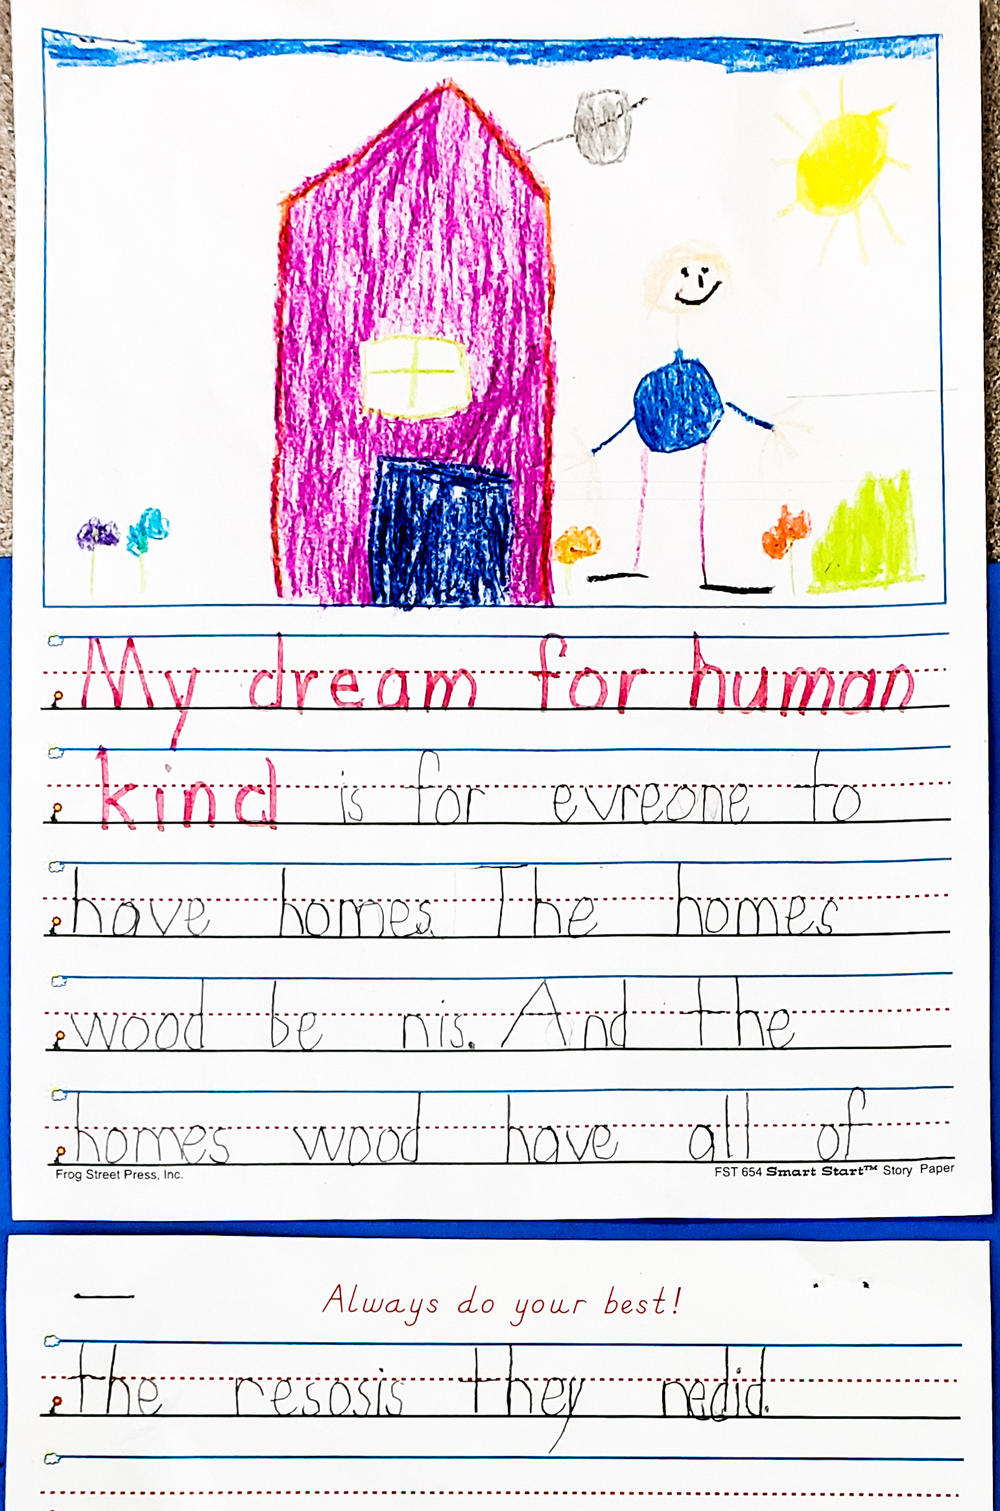 My dream for human
kind is for evreone to
have homes. The homes
wood be nis. And the
homes wood have all of
Frog Street Press, Inc. FST 654 Smart Start™ Story Paper
Always do your best!
the resosis they nedid.